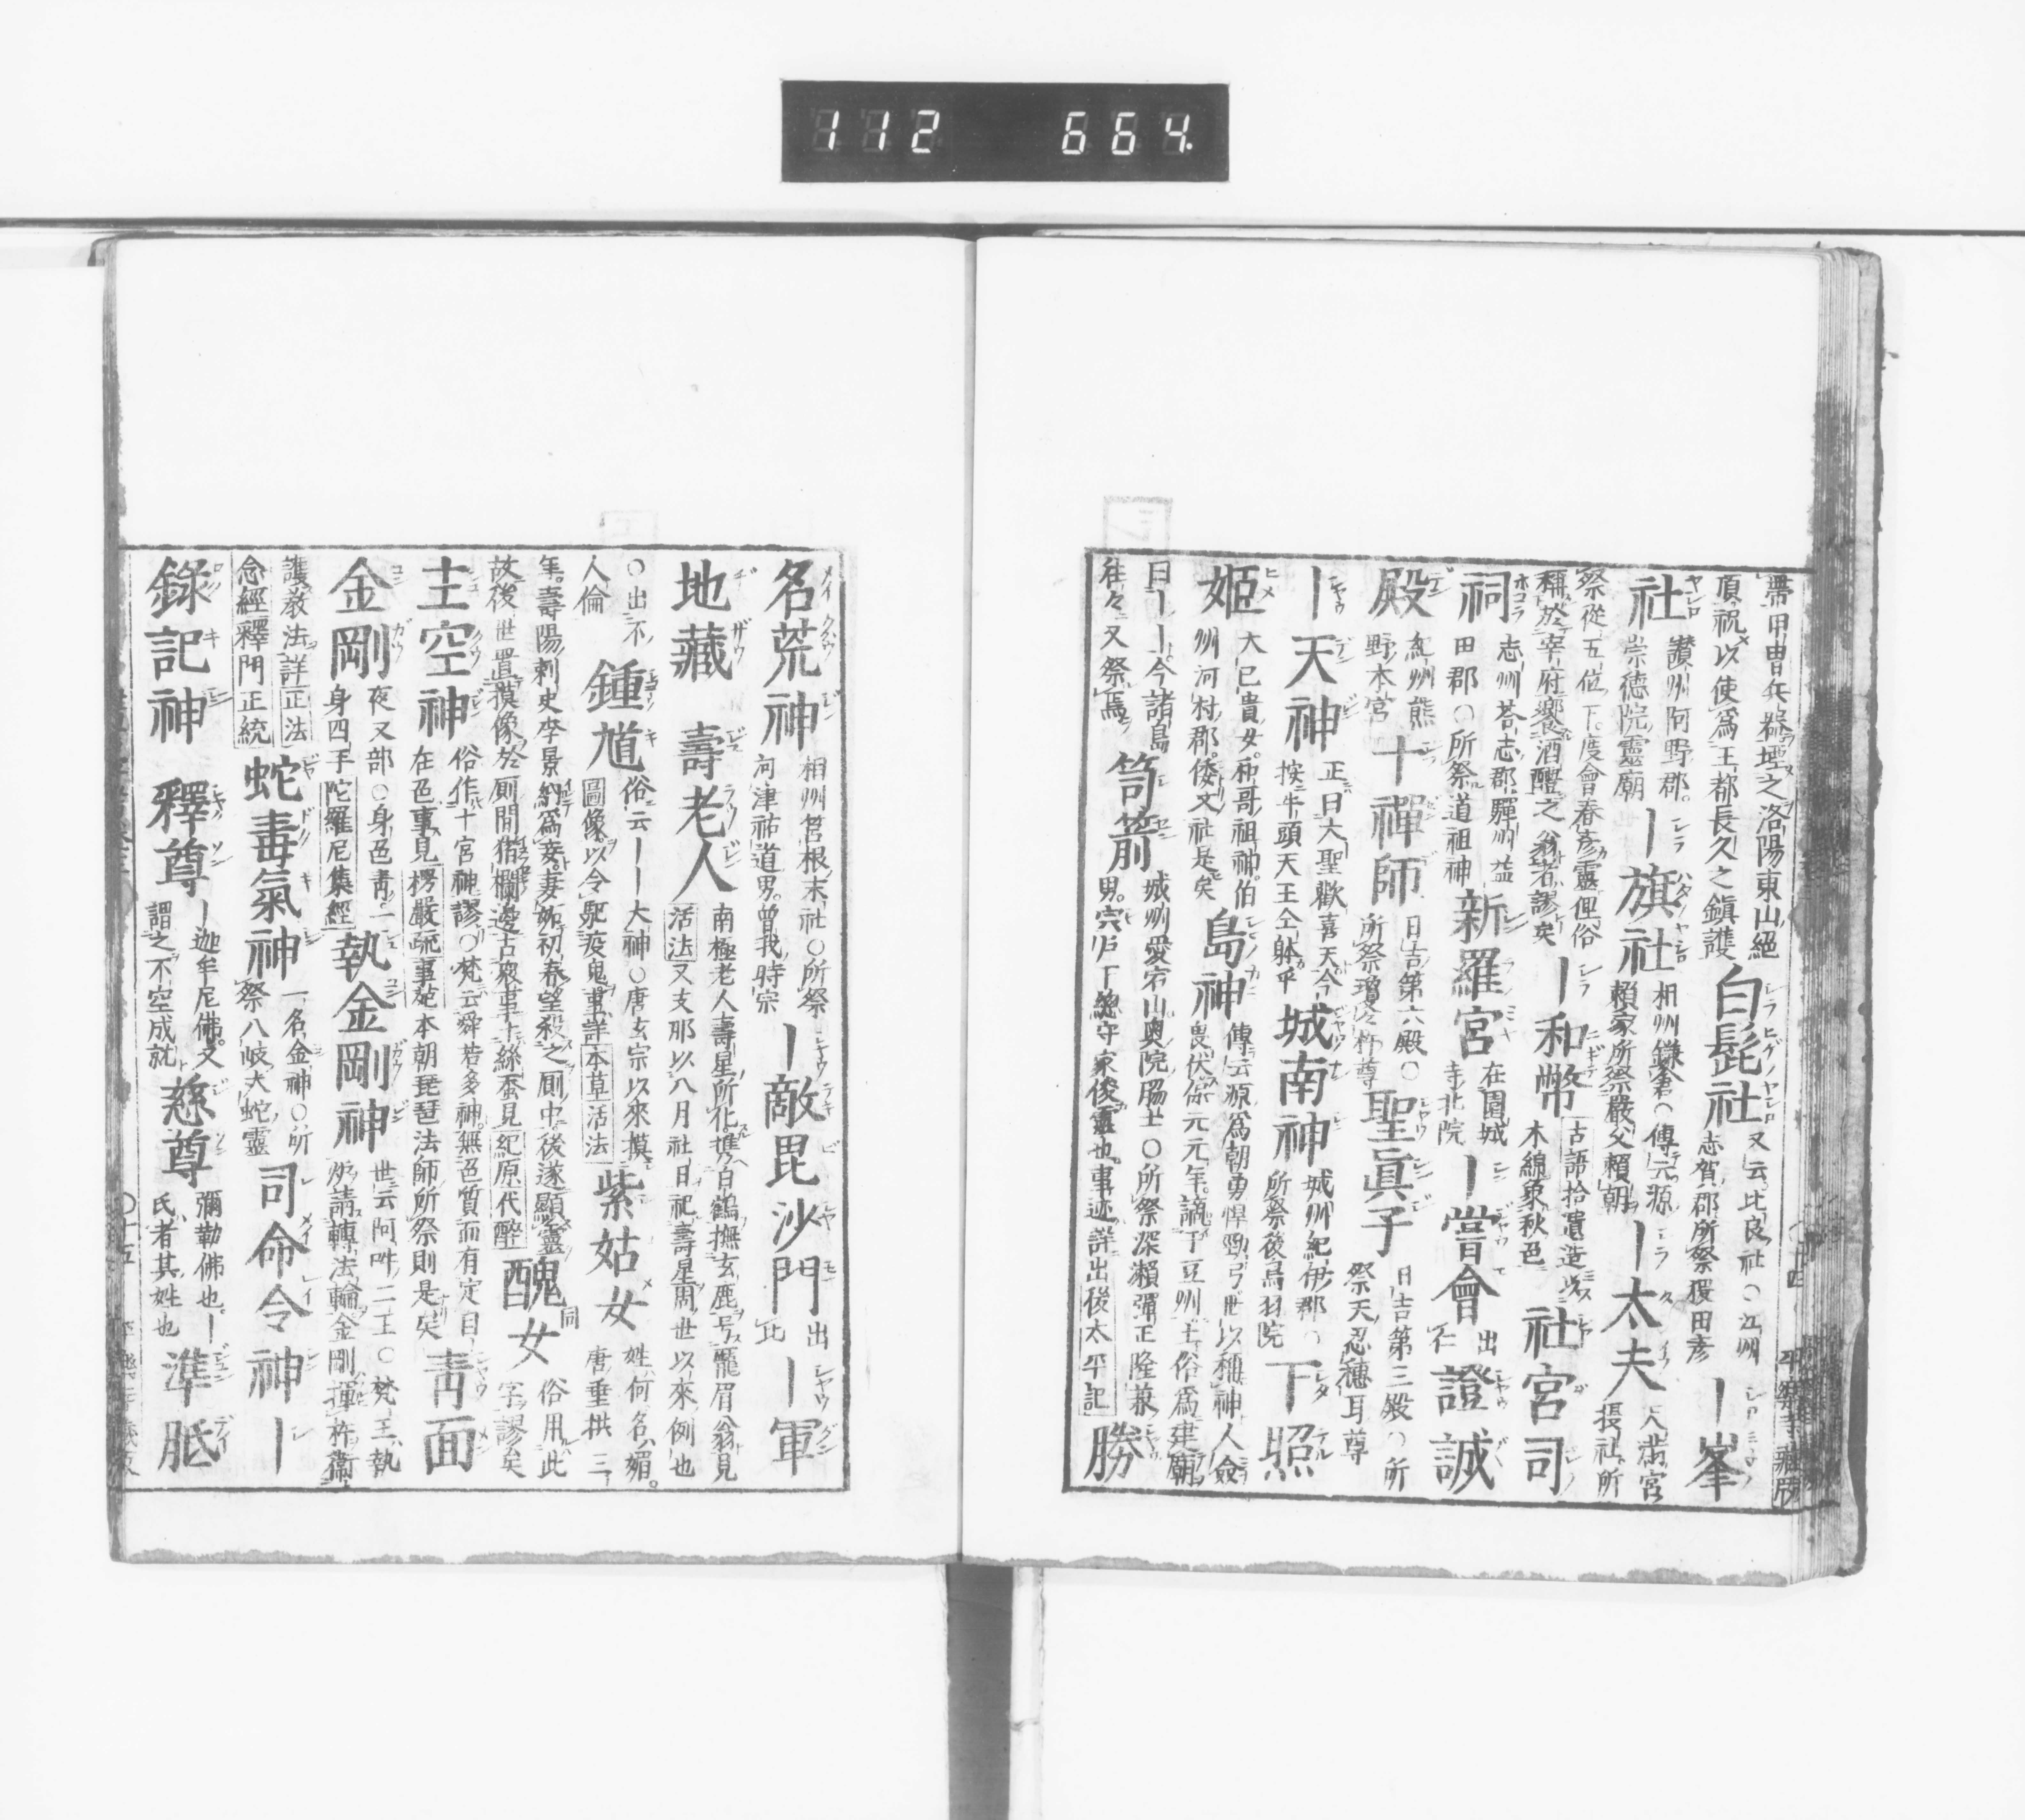 112 664.
帶甲曹兵器埋之洛陽東山絕
頂祝以使爲王都長久之鎮護
白髭社
又云比良社○江州
志賀郡所祭猨田彦
一峯
社
讚州阿野郡
崇德院靈廟
一旗社
相州鎌倉○傳云源
賴家所祭嚴父賴朝
一太夫
天滿宮
攝社所
祭從五位下度會春彦靈俚俗
稱於宰府饗酒醴之翁者謬矣
一和幣
古語拾遺造
木綿象秋色
社宮司
祠
志州荅志郡驒州益
田郡○所祭道祖神
新羅宮
在園城
寺北院
一嘗會
出
證誠
殿
紀州熊
野本宮
十禪師
日吉第六殿○
所祭瓊々杵尊
聖眞子
日吉第三殿○所
祭天忍穗耳尊
一天神
正曰大聖歡喜天今
按牛頭天王仝躰乎
城南神
城州紀伊郡○
所祭後鳥羽院
下照
姬
大己貴女味哥祖神伯
州河村郡倭文社是矣
島神
傳云源爲朝勇悍勁弓世以稱神人僉
畏伏保元元年謫于豆州土俗爲建廟
曰一一今諸島
往々又祭焉
笴箭
城州愛宕山奧院勝士○所祭深瀨彈正隆兼
男宍戶下總守家俊靈也事迹詳出後太平記
勝
名荒神
相州筥根末社○所祭
河津祐道男曾我時宗
一敵毘沙門
出
比
一軍
地藏
壽老人
南極老人壽星所化携白鶴撫玄鹿号龐眉翁見
活法又支那以八月社日祀壽星周世以來例也
○出不
人倫
鍾馗
俗云一一大神○唐玄宗以來摸
圖像以令駈疫鬼事詳本草活法
紫姑女
姓何名媚
唐垂拱三
年壽陽刺史李景納爲妾妻妬初春望殺之厠中後遂顯靈
故後世置摸像於厠間猪欄邊古衆事十絲蚕見紀原代醉
醜女
同
俗用此
字謬矣
主空神
俗作十宮神謬○梵云舜若多神無色質而有定自
在色事見楞嚴砸事苑本朝琵琶法師所祭則是矣
靑面
金剛
夜叉部○身色靑一
身四手陀羅尼集經
執金剛神
世云阿吽二王○梵王執
炉請轉法輪金剛揮杵衞
護敎法詳正法
念經釋門正統
蛇毒氣神
一名金神○所
祭八岐大蛇靈
司命令神
一
錄記神
釋尊
一迦牟尼佛又
謂之不空成就
慈尊
彌勒佛也一
氏者其姓也
準胝